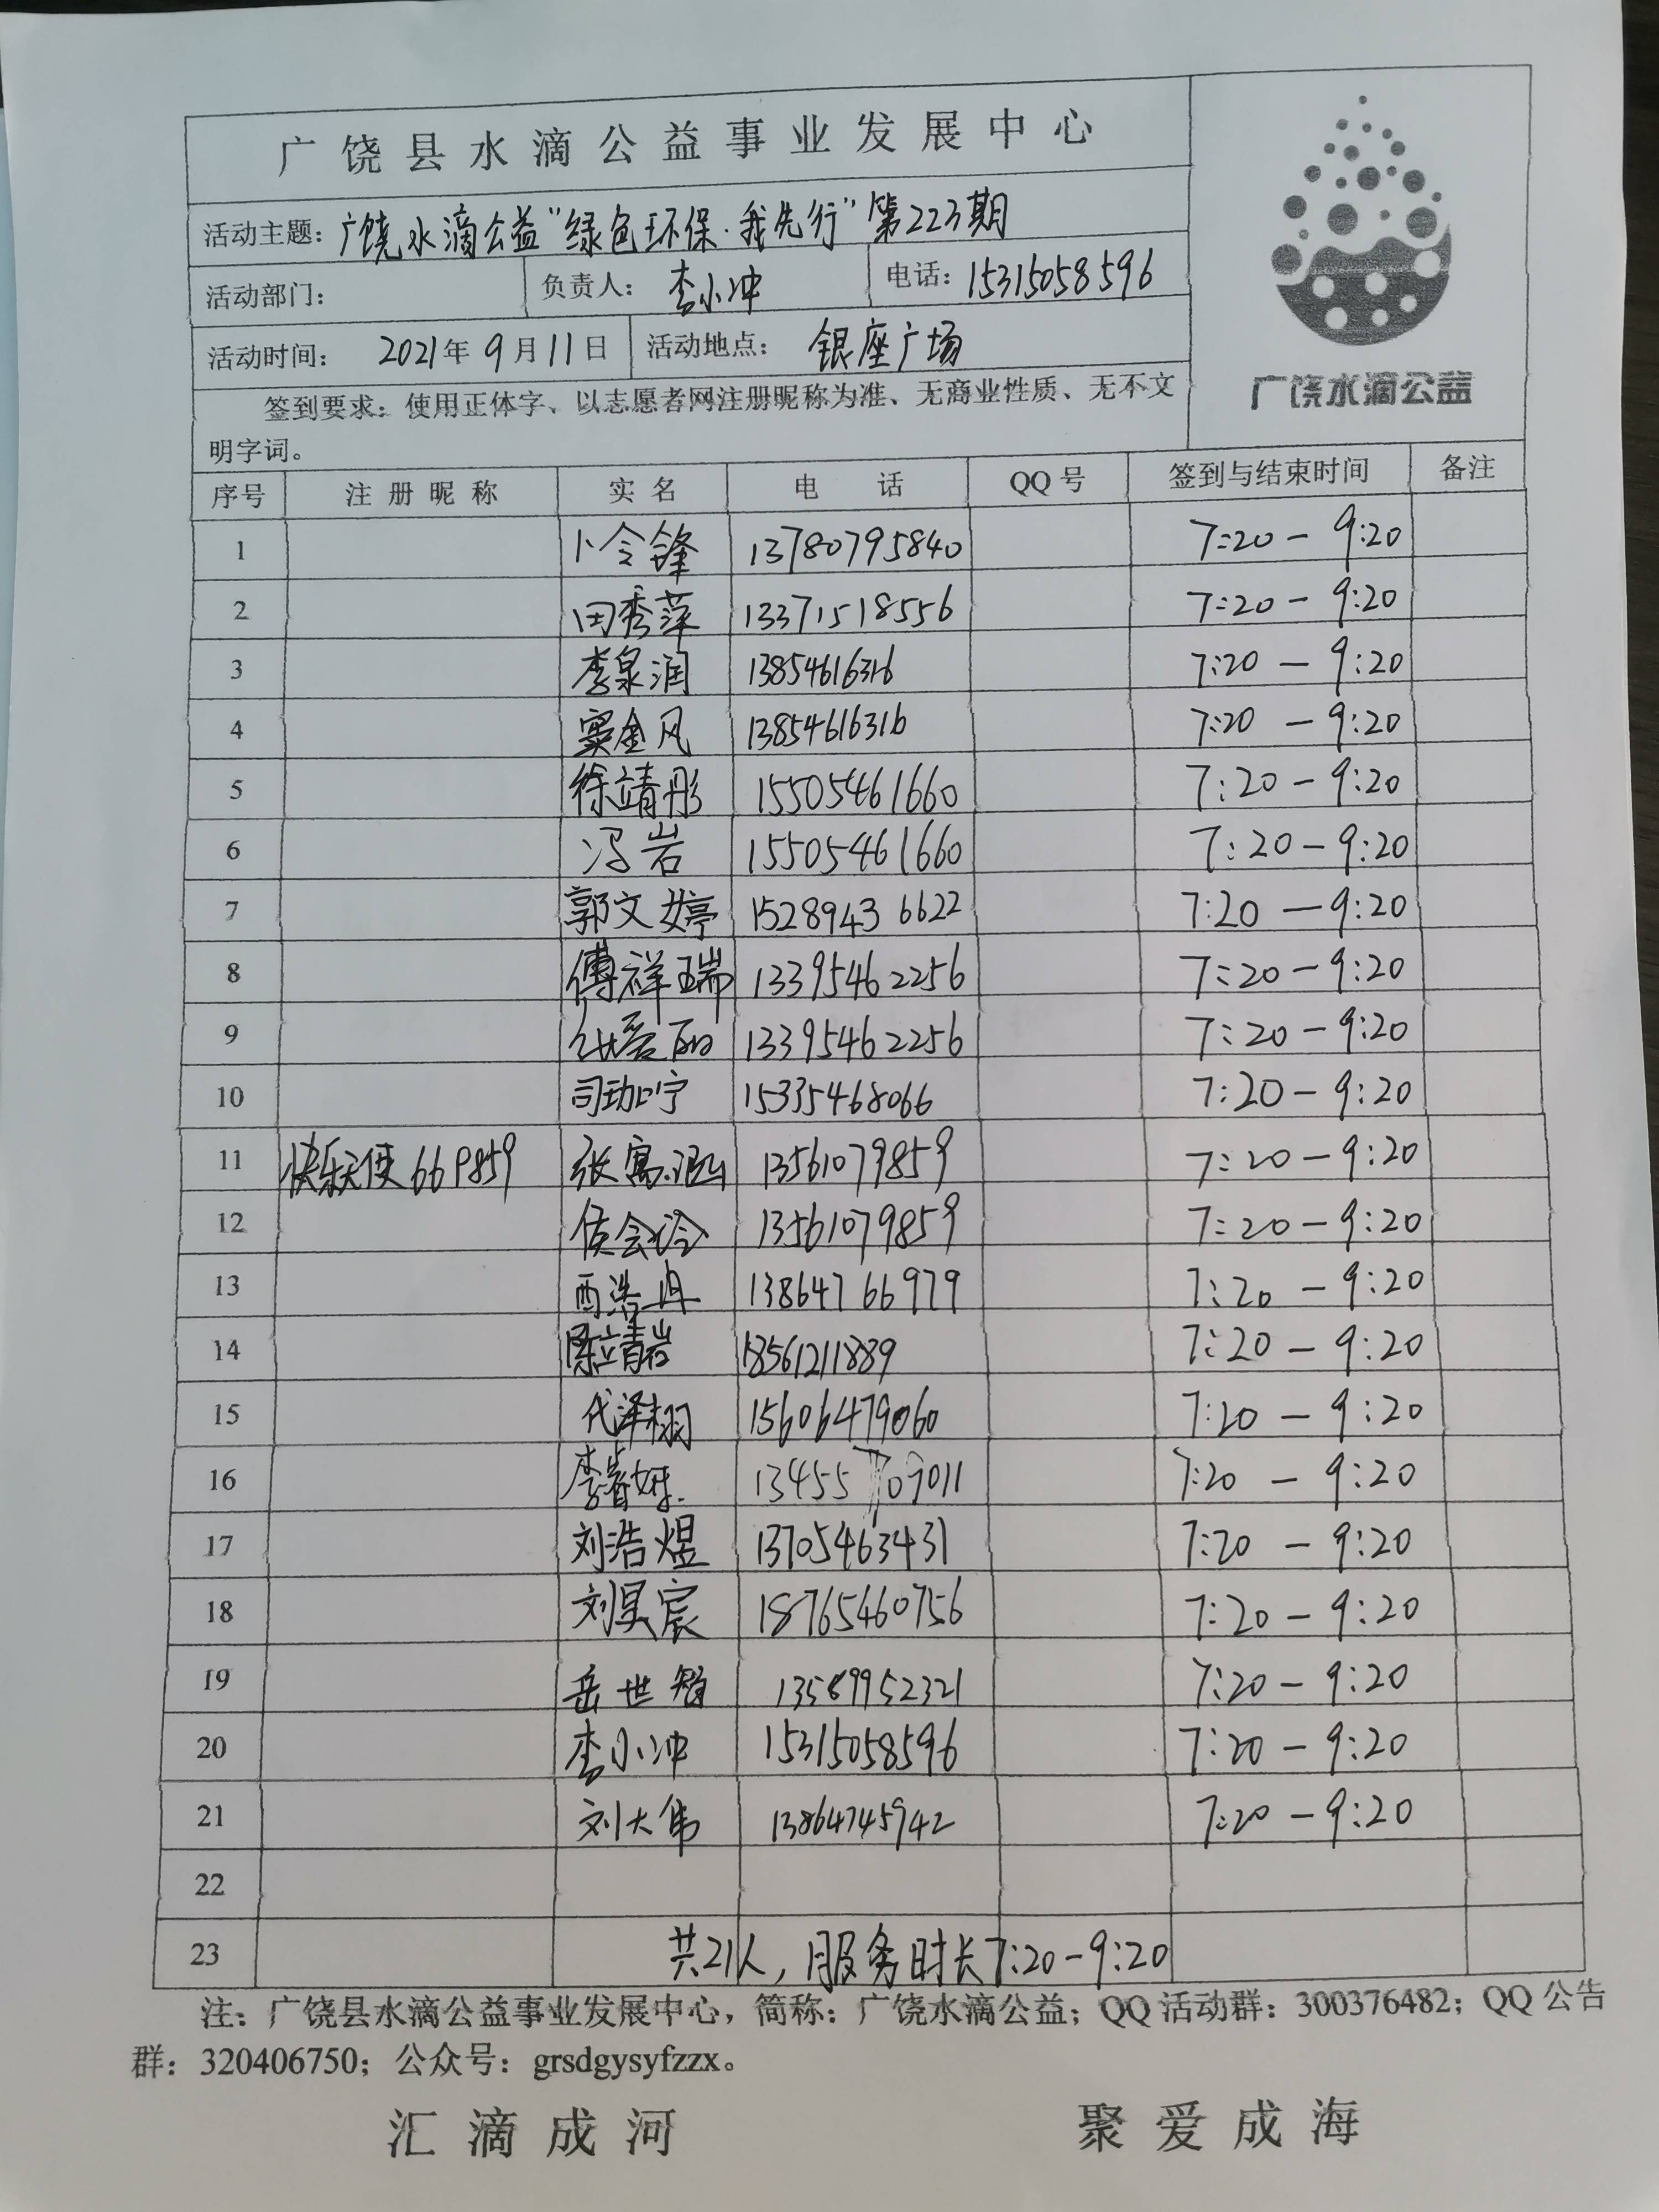 广饶县水滴公益事业发展中心
活动主题：广饶水滴公益“绿色环保·我先行”第223期
活动部门： 负责人：李小冲 电话：15315058596
活动时间：2021年9月11日 活动地点：银座广场
广饶水滴公益
签到要求：使用正体字、以志愿者网注册昵称为准、无商业性质、无不文
明字词。
序号 注册昵称 实名 电话 QQ号 签到与结束时间 备注
1 卜令锋 13780795840 7:20-9:20
2 田秀萍 13371518556 7:20-9:20
3 李泉润 13854616316 7:20-9:20
4 窦金凤 13854616316 7:20-9:20
5 徐靖彤 15505461660 7:20-9:20
6 冯岩 15505461660 7:20-9:20
7 郭文婷 15289436622 7:20-9:20
8 傅祥瑞 13395462256 7:20-9:20
9 13395462256 7:20-9:20
10 15335468066 7:20-9:20
11 快乐天使669859 张寓涵 13561079859 7:20-9:20
12 侯会玲 13561079859 7:20-9:20
13 13864766979 7:20-9:20
14 陈靖岩 18561211889 7:20-9:20
15 代泽栩 15606479060 7:20-9:20
16 13455709011 7:20-9:20
17 刘浩煜 13705463431 7:20-9:20
18 刘昊宸 18765460756 7:20-9:20
19 岳世智 13589952321 7:20-9:20
20 李小冲 15315058596 7:20-9:20
21 刘大伟 13864745942 7:20-9:20
22
23 共21人，服务时长7:20-9:20
注：广饶县水滴公益事业发展中心，简称：广饶水滴公益；QQ活动群：300376482；QQ公告
群：320406750；公众号：grsdgysyfzzx。
汇滴成河 聚爱成海